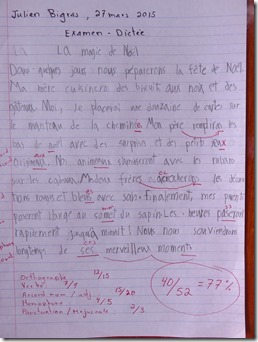 Julien Bigras, 27 mars 2015
Examen - Dictée
La magie de Noël
Dans quelques jours nous préparerons la fête de Noël.
Ma mère cuisinera des biscuit aux noix et des
gâteaux. Moi, je placerai une douzaine de cartes sur
le manteau de la cheminée. Mon père remplira les
bas de noël avec des surprises et des petits
animaux s'amuseront avec les rubans
sur les cadeaux. Mes deux frères les
rouges et avec soin. Finalement, mes parents
poseront l'ange au sapin. Les heures
rapidement minuit! Nous nous souviendrons
longtemps de ses merveilleux moments.
Orthographe 12/15
Verbe 7/9
Accord nom / adj. 15/20
Homophone 4/5
Ponctuation / Majuscule 2/3
40/52 = 77%